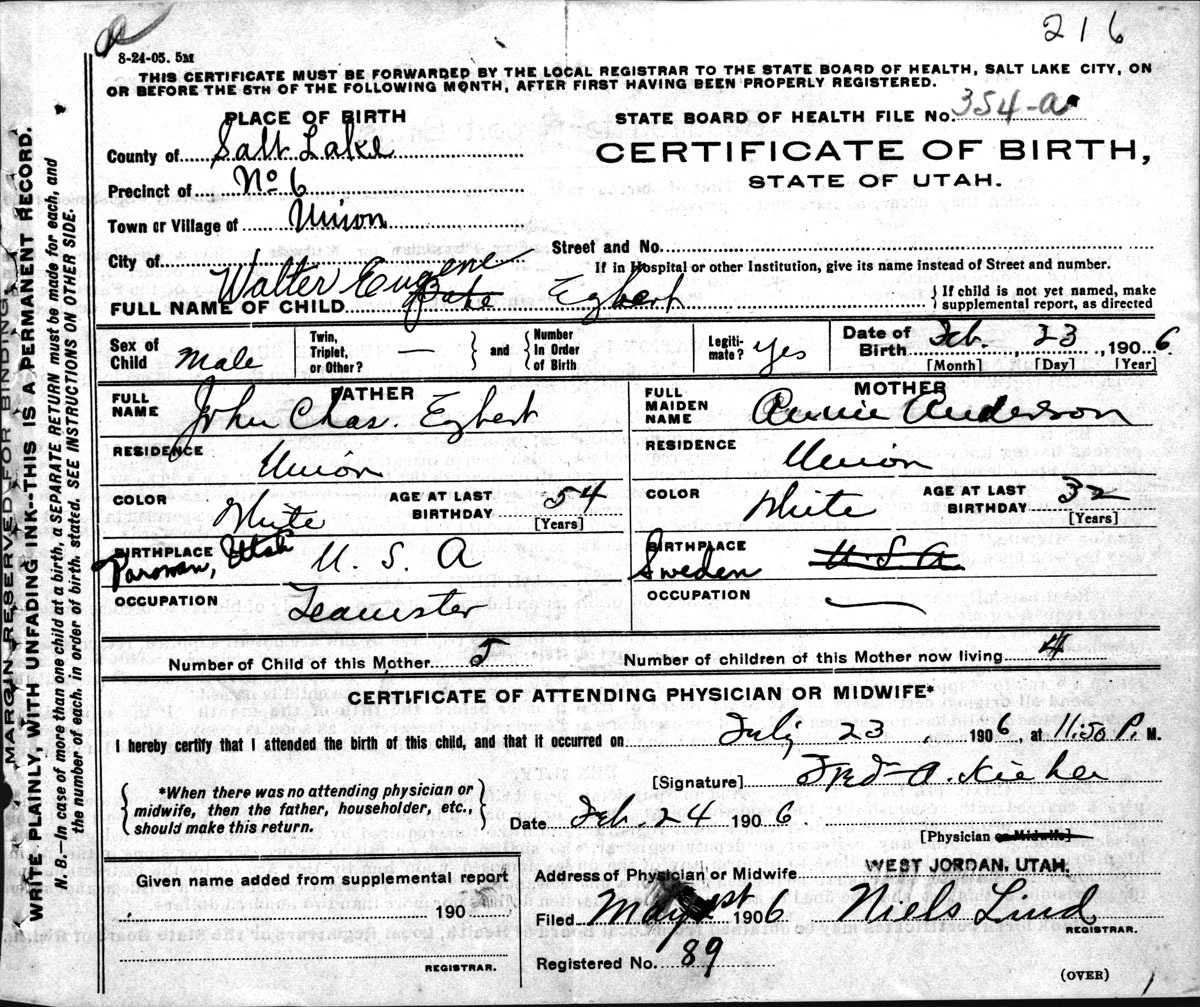 216
8-24-05. 5M
THIS CERTIFICATE MUST BE FORWARDED BY THE LOCAL REGISTRAR TO THE STATE BOARD OF HEALTH, SALT LAKE CITY, ON
OR BEFORE THE 5TH OF THE FOLLOWING MONTH, AFTER FIRST HAVING BEEN PROPERLY REGISTERED.
PLACE OF BIRTH
STATE BOARD OF HEALTH FILE No. 354-a
County of Salt Lake
CERTIFICATE OF BIRTH,
STATE OF UTAH.
Precinct of No 6
Town or Village of Union
Street and No.
City of
If in Hospital or other Institution, give its name instead of Street and number.
Walter Eugene
FULL NAME OF CHILD Egbert
{ If child is not yet named, make
supplemental report, as directed
Sex of Child Male
Twin, Triplet, or Other? —
and
Number in Order of Birth
Legiti-mate? yes
Date of Birth Feb. 23, 1906.
[Month] [Day] [Year]
FATHER
MOTHER
FULL NAME John Chas. Egbert
FULL MAIDEN NAME Annie Anderson
RESIDENCE Union
RESIDENCE Union
COLOR White
AGE AT LAST BIRTHDAY 54
[Years]
COLOR White
AGE AT LAST BIRTHDAY 32
[Years]
BIRTHPLACE Parowan, Utah U. S. A
BIRTHPLACE Sweden U S A
OCCUPATION Teamster
OCCUPATION
Number of Child of this Mother 5
Number of children of this Mother now living 4
CERTIFICATE OF ATTENDING PHYSICIAN OR MIDWIFE*
I hereby certify that I attended the birth of this child, and that it occurred on July 23, 1906, at 11:50 P. M.
[Signature] Fred A.
{ *When there was no attending physician or
midwife, then the father, householder, etc.,
should make this return. }
Date Feb 24 1906.
[Physician or Midwife]
Given name added from supplemental report
190
REGISTRAR.
Address of Physician or Midwife WEST JORDAN, UTAH.
Filed May 1st 1906 Niels Lind
REGISTRAR.
Registered No. 89
(OVER)
MARGIN RESERVED FOR BINDING
WRITE PLAINLY, WITH UNFADING INK--THIS IS A PERMANENT RECORD.
N. B.—In case of more than one child at a birth, a SEPARATE RETURN must be made for each, and
the number of each, in order of birth, stated. SEE INSTRUCTIONS ON OTHER SIDE.